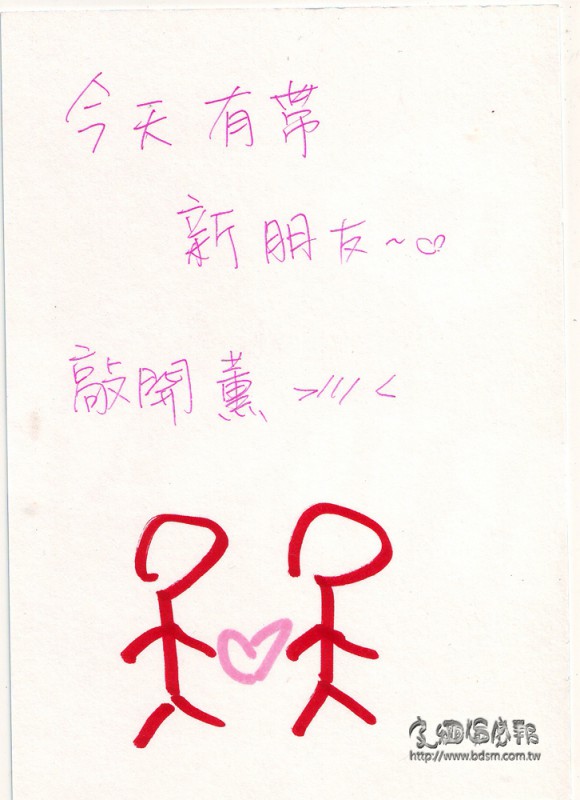 今天有帶
新朋友~♡
敲開薰 >///<
http://www.bdsm.com.tw